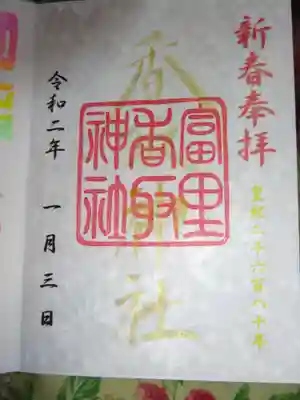 新春奉拝
皇紀二千六百八十年
香取神社
富里
香取
神社
令和二年 一月三日